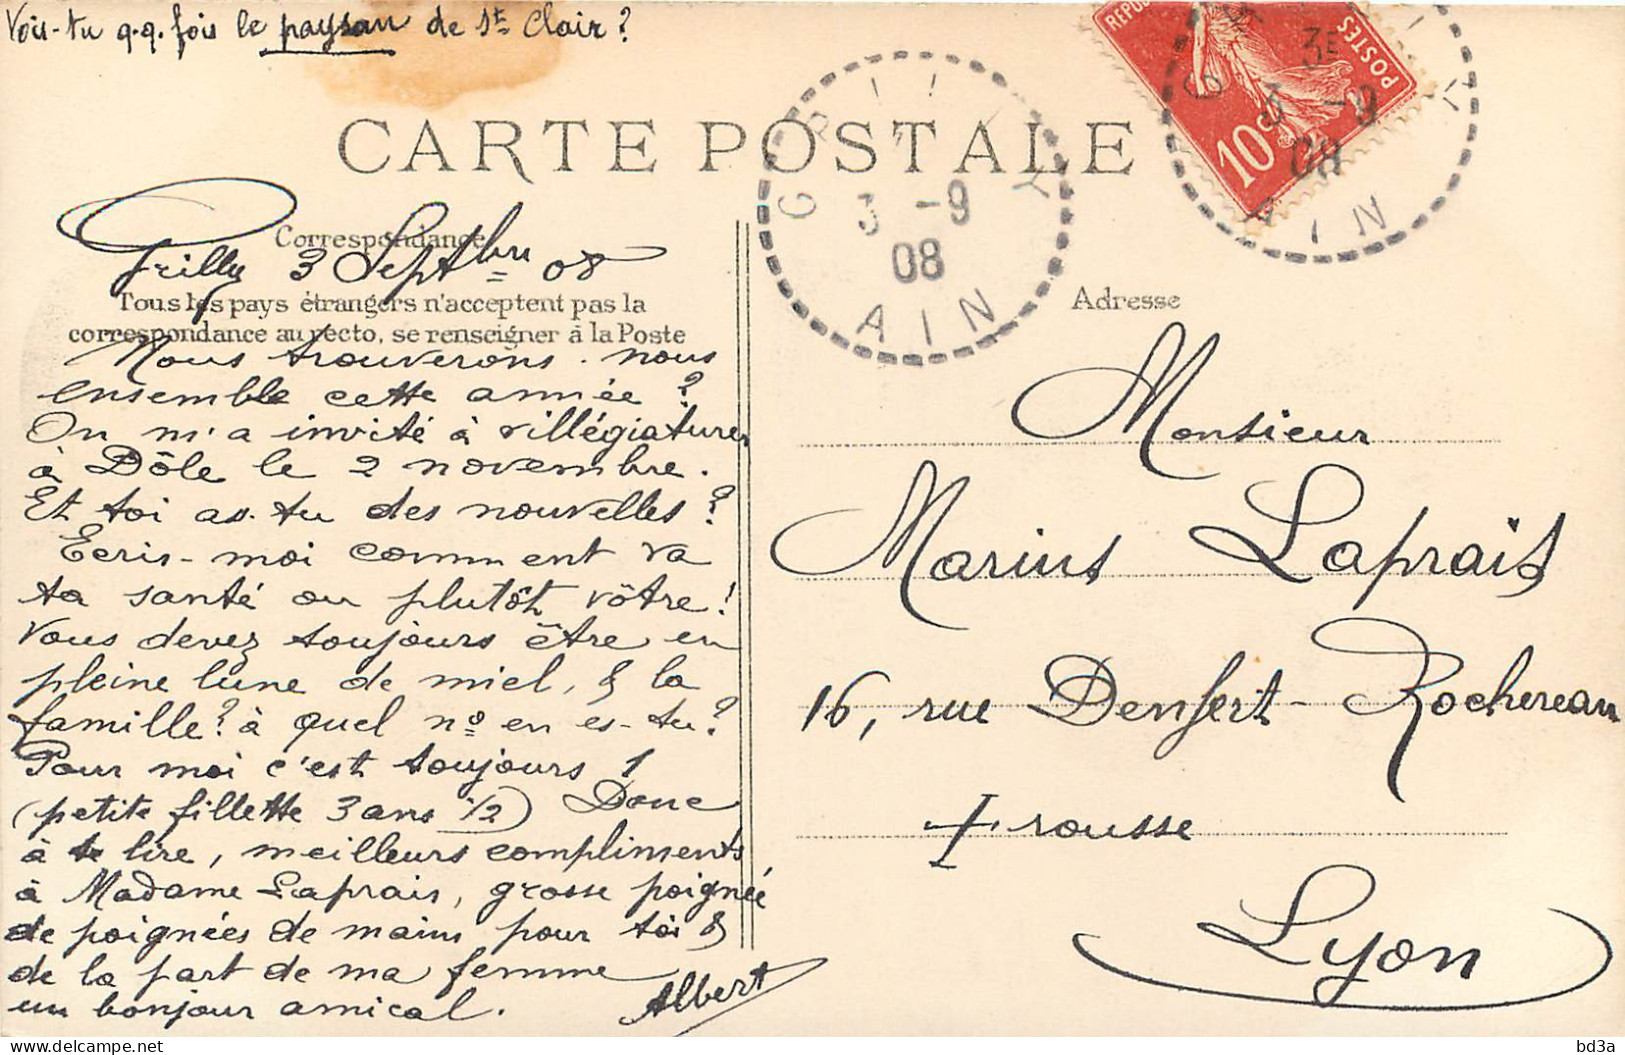 Vois-tu q.q. fois le paysan de St Clair?
CARTE POSTALE
Correspondance
Grilly 3 Septbre 08
Tous les pays étrangers n'acceptent pas la
correspondance au recto, se renseigner à la Poste
Nous trouverons-nous
ensemble cette année?
On m'a invité à villégiaturer
à Dôle le 2 novembre.
Et toi as-tu des nouvelles?
Ecris-moi comment va
ta santé ou plutôt vôtre!
Vous devez toujours être en
pleine lune de miel, & la
famille? à quel no en es-tu?
Pour moi c'est toujours 1
(petite fillette 3 ans 1/2) Donc
à te lire, meilleurs compliments
à Madame Laprais, grosse poignée
de poignées de mains pour toi &
de la part de ma femme
un bonjour amical.
Albert
GRILLY
3 -9
08
AIN
REPUB
POSTES
10c
3E
3 -9
08
AIN
Adresse
Monsieur
Marius Laprais
16, rue Denfert-Rochereau
+rousse
Lyon
bd3a
www.delcampe.net